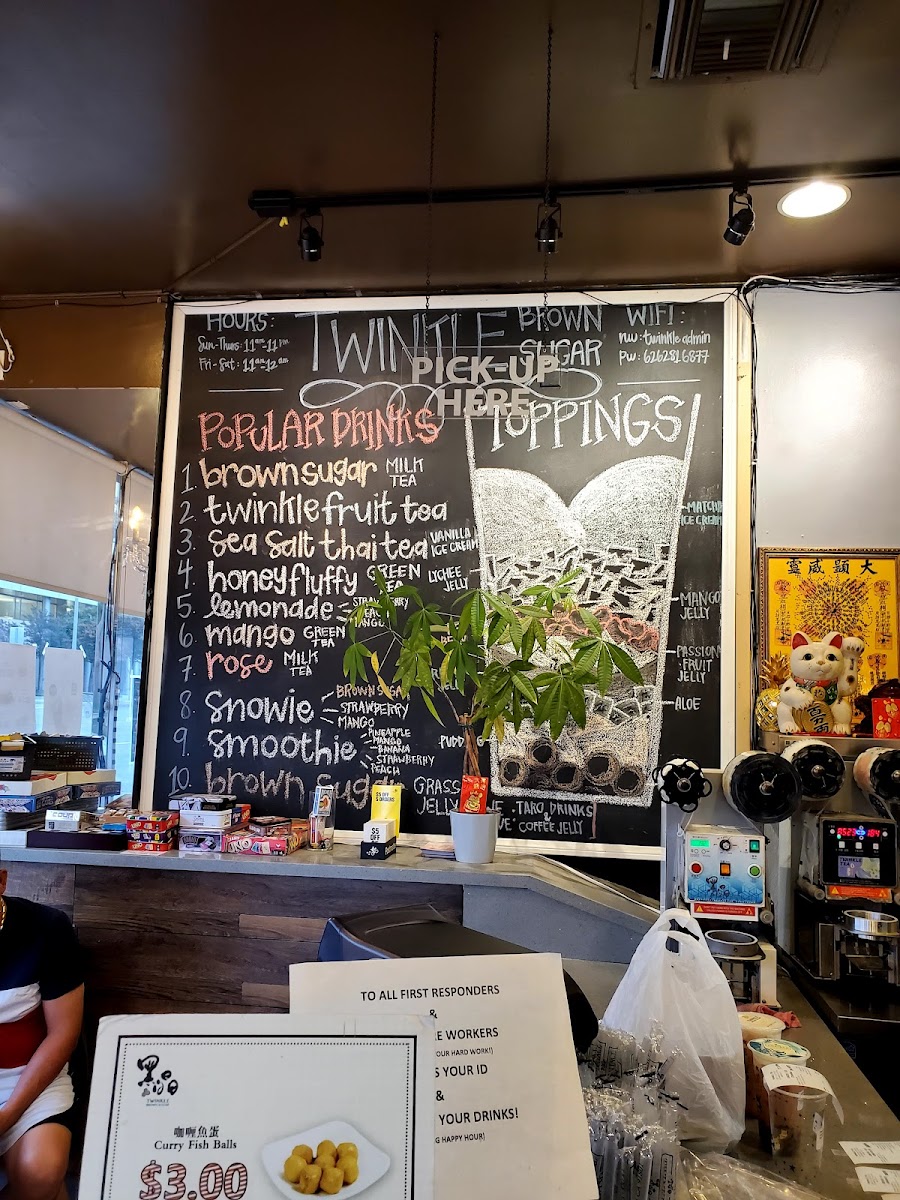 HOURS:
Sun-Thurs: 11am-11pm
Fri-Sat: 11am-12am
TWINKLE
BROWN
SUGAR
WIFI:
nw: twinkle admin
pw: 6262816877
PICK-UP
HERE
POPULAR DRINKS
1. brown sugar MILK TEA
2. twinkle fruit tea
3. sea salt thai tea
4. honey fluffy GREEN TEA
5. lemonade
STRAWBERRY
MANGO
6. mango GREEN TEA
7. rose MILK TEA
8. snowie
BROWN SUGAR
STRAWBERRY
MANGO
9. smoothie
PINEAPPLE
MANGO
BANANA
STRAWBERRY
PEACH
10. brown sugar
TOPPINGS
VANILLA
ICE CREAM
LYCHEE
JELLY
GRASS
JELLY
MATCHA
ICE CREAM
MANGO
JELLY
PASSION
FRUIT
JELLY
ALOE
TARO DRINKS
&
COFFEE JELLY
大顯威靈
$5 OFF
$5
OFF
TO ALL FIRST RESPONDERS
&
E WORKERS
YOUR HARD WORK!)
S YOUR ID
&
YOUR DRINKS!
G HAPPY HOUR)
TWINKLE
咖喱魚蛋
Curry Fish Balls
$3.00